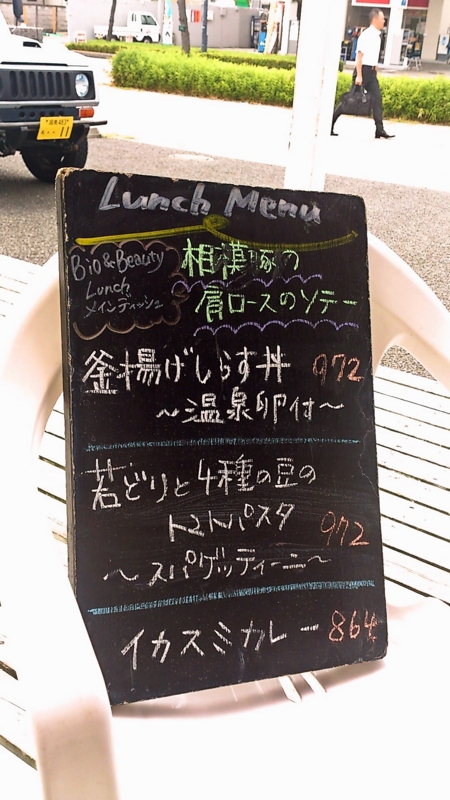 Lunch Menu
Bio & Beauty
Lunch
メインディッシュ
相模豚の
肩ロースのソテー
釜揚げしらす丼 972
～温泉卵付～
若どりと4種の豆の
トマトパスタ 972
～スパゲッティーニ～
イカスミカレー 864